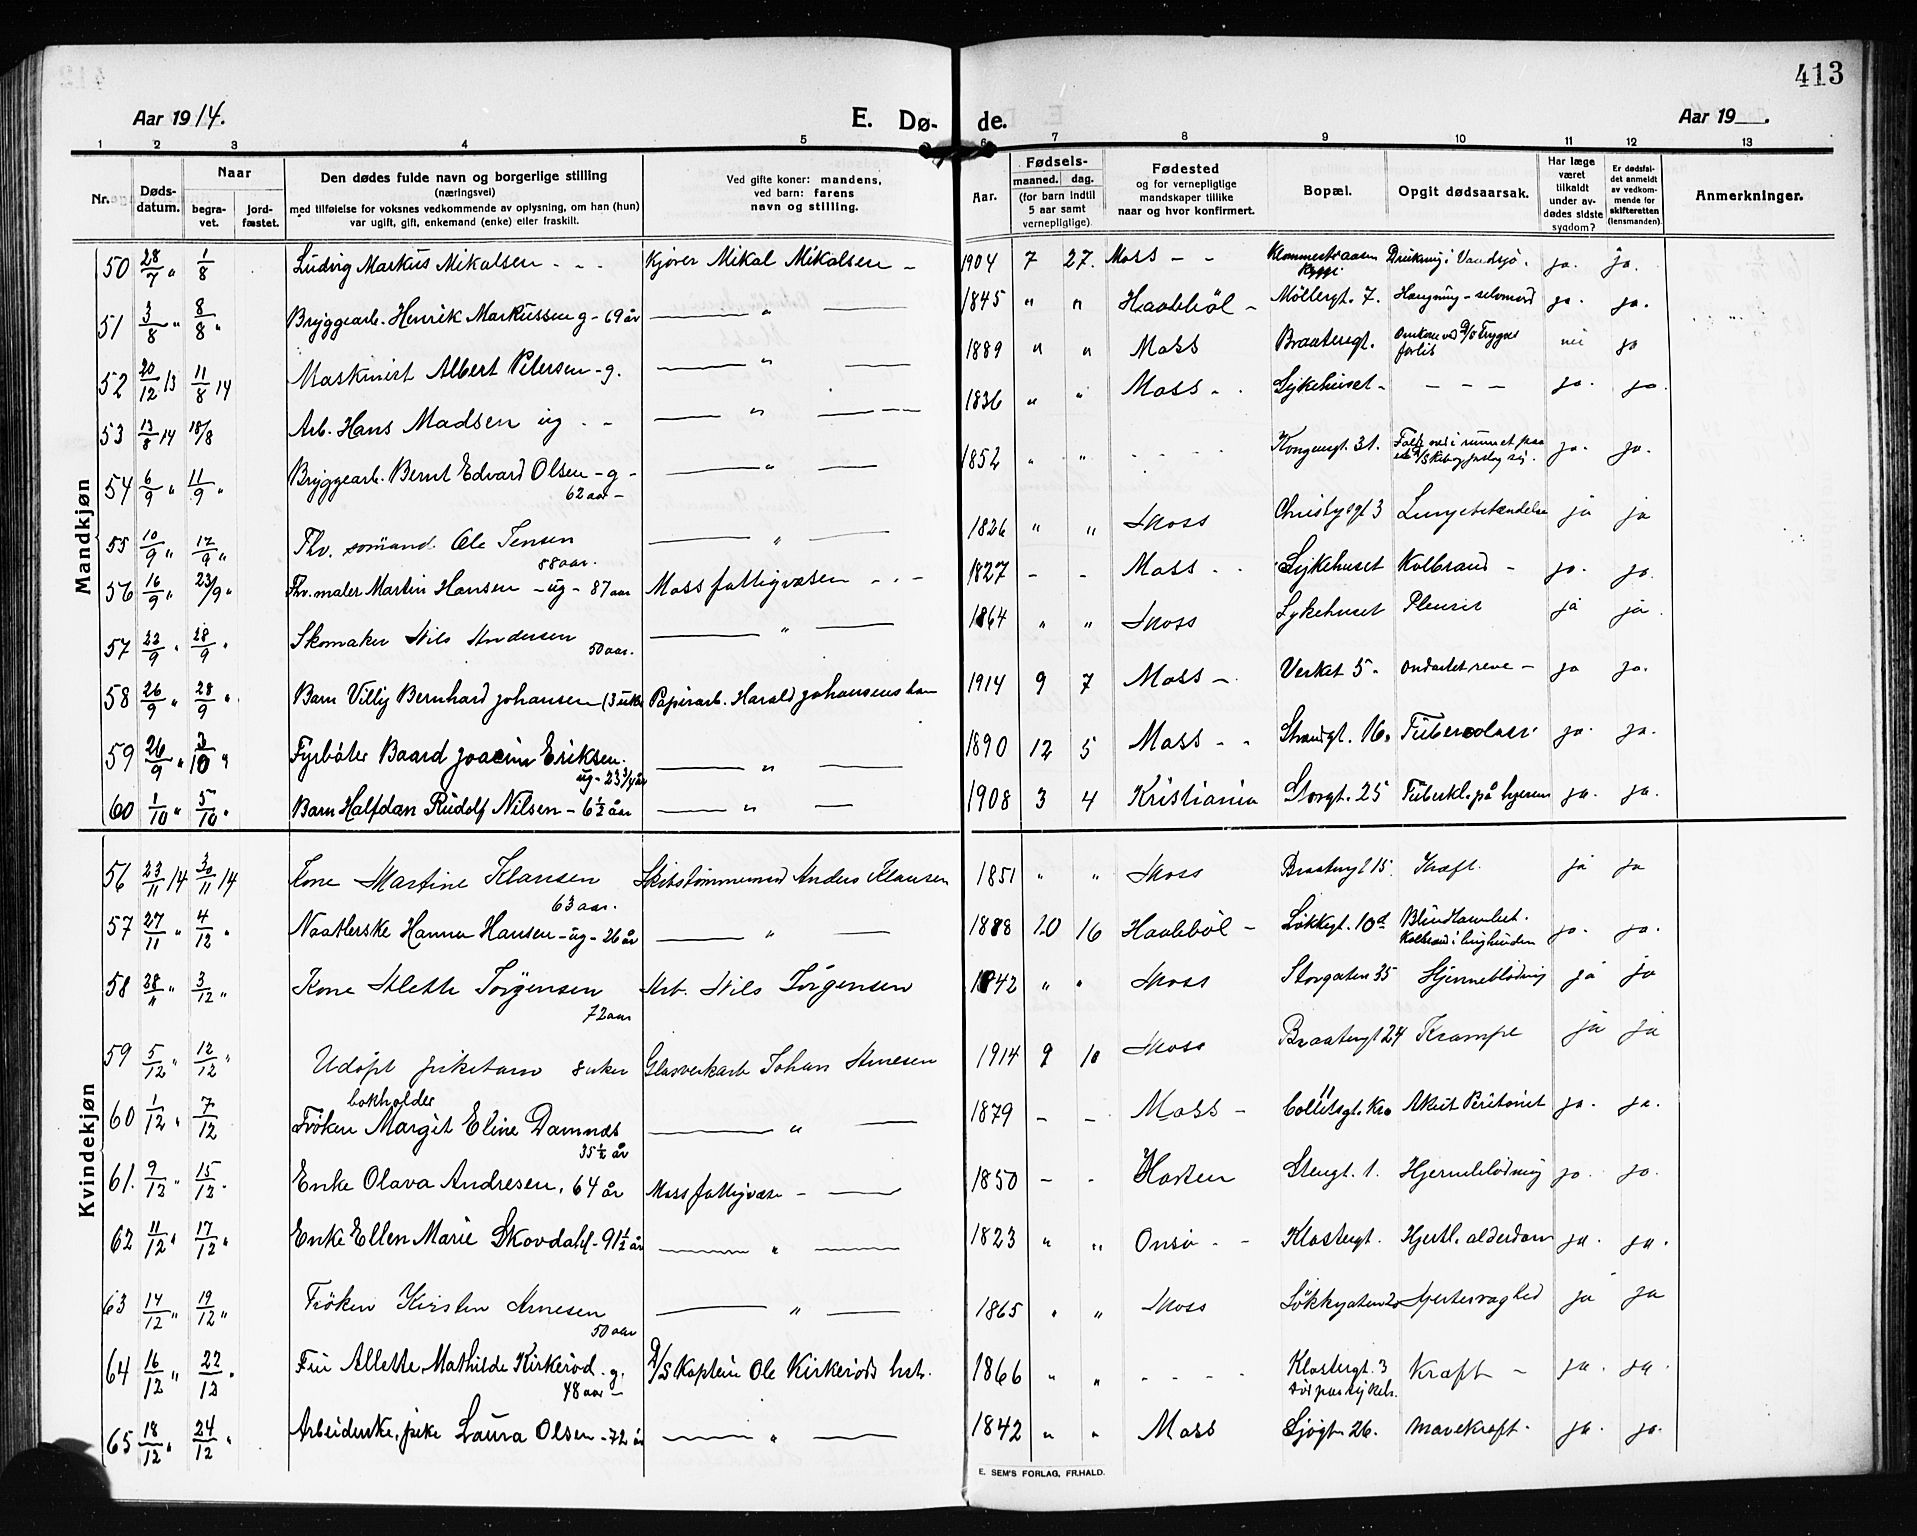 413
Aar 1914.
E. Dø-
de.
Aar 19
1 2 3 4 5 6 7 8 9 10 11 12 13
Nr.
Døds-
datum.
Naar
begra-
vet.
jord-
fæstet.
Den dødes fulde navn og borgerlige stilling
(næringsvei)
med tilføielse for voksnes vedkommende av oplysning, om han (hun)
var ugift, gift, enkemand (enke) eller fraskilt.
Ved gifte koner: mandens,
ved barn: farens
navn og stilling.
Aar.
Fødsels-
maaned. dag.
(for barn indtil
5 aar samt
vernepligtige).
Fødested
og for vernepligtige
mandskaper tillike
naar og hvor konfirmert.
Bopæl.
Opgit dødsaarsak.
Har læge
været
tilkaldt
under av-
dødes sidste
sygdom?
Er dødsfal-
det anmeldt
av vedkom-
mende for
skifteretten
(lensmanden).
Anmerkninger.
Mandkjøn
50 28/7 " 1/8 Ludvig Markus Mikalsen - - - Kjører Mikal Mikalsen - 1904 7 27. Moss - - Drukning i Vandsjø. ja. ja.
51 3/8 " 8/8 " Bryggearb. Henrik Markussen g - 69 år " 1845 " " Haabøl - Møllergt. 7. Hængning - selvmord ja. ja.
52 20/12 13 11/8 14 Maskinist Albert Petersen - g. " 1889 " " Moss Braatengt. Omkom ved D/S Trygves forlis nei ja
53 13/8 14 18/8 Arb. Hans Madsen ug. - " 1836 " " Moss - . Sykehuset - - - - ja. ja.
54 6/9 " 11/9 " Bryggearb. Bernt Edvard Olsen - g - " 1852 " " - - - - Kongensgt. 31. ja. ja.
62 aar -
55 10/9 " 17/9 " Fhv. sømand. Ole Jensen " 1826 " " Moss 3 Lungebetændelse ja ja
88 aar.
56 16/9 " 23/9 " Fhv. maler Martin Hansen - ug - 87 aar Moss fattigvæsen - . - 1827 - - Moss - . Sykehuset Kolbrand - ja. ja.
57 22/9 " 28/9 " Skomaker Nils Andersen " 1864 " " Moss Sykehuset Pleurit ja ja.
50 aar.
58 26/9 " 28/9 " Barn Villy Bernhard Johansen (3 uker Papirarb. Harald Johansens barn 1914 9 7 Moss - . Verket 5 - ja ja.
59 26/9 " 3/10 " Fyrbøter Baard Joacim Eriksen. " 1890 12 5 Moss - . Strandgt. 16. Tuberculose. ja. ja.
ug - 23 3/4 år
60 1/10 " 5/10 " Barn Halfdan Rudolf Nilsen - 6½ år " 1908 3 4 Kristiania Storgt. 25 Tuberkl. på hjernen ja. ja.
Kvindekjøn
56 23/11 14 30/11 14 Kone Martine Klausen Skibstømmermand Anders Klausen 1851 " " Moss Braatengt 15. Kræft. ja ja
63 aar.
57 27/11 " 4/12 " Naatlerske Hanna Hansen - ug - 26 år " 1888 10 16 Haabøl - Løkkegt. 10d Blindtarmbet. ja. ja.
58 28/11 " 3/12 " Kone Alette Jörgensen Arb. Nils Jörgensen 1842 " " Moss Storgaten 35 Hjerneblödning ja ja
72 aar
59 5/12 " 12/12 " Udöpt pikebarn 8 uker Glasverkarb Johan Arnesen 1914 9 10 Moss Braatengt 24 Krampe ja ja
60 1/12 " 7/12 bokholder
Fröken Margit Eline Damnæs " 1879 - - Moss - Akut Peritonit ja. ja.
35½ år
61. 9/12 " 15/12 " Enke Olava Andresen. 64 år Moss fattigvæse - 1850 - - Horten Stengt. 1. Hjerneblödning ja. ja.
62 11/12 " 17/12 " Enke Ellen Marie Skovdahl - 91½ år " 1823 " " Onsö - - Klostergt. Hjertl. alderdom ja. ja.
63 14/12 " 19/12 " Fröken Kirsten Arnesen " 1865 " " Moss Løkkegaten 20 Hjertesvaghed ja ja
50 aar
64 16/12 " 22/12 " Fru Allette Mathilde Kirkeröd - g. D/S Kaptein Ole Kirkeröds hst. 1866 " " - - - - Klostergt. 3 Kræft - ja. ja.
48 aar -
65 18/12 " 24/12 " Arbeiderske, pike Laura Olsen - 72 år " 1842 " " Moss Sjøgt. 26. Mavekræft. ja. ja.
E. SEM'S FORLAG, FR.HALD.